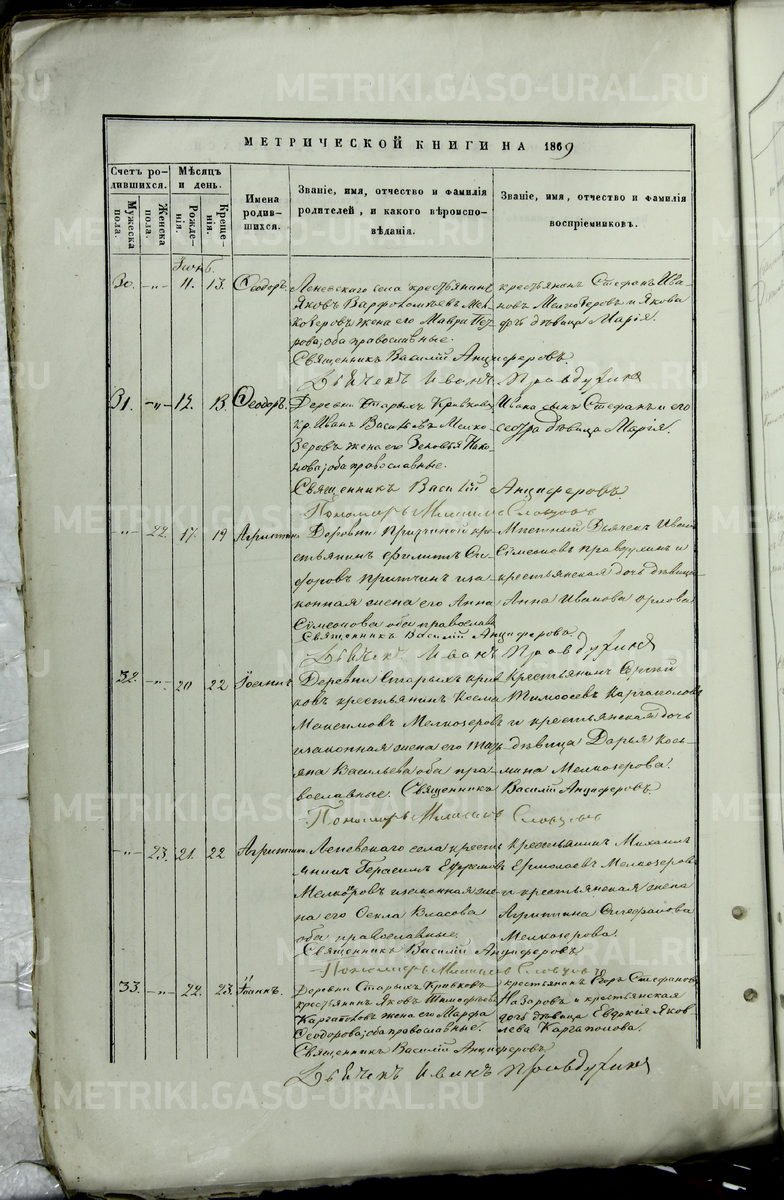 METRIKI.GASO-URAL.RU
МЕТРИЧЕСКОЙ КНИГИ НА 1869
Счетъ родившихся.
Мужеска пола.
Женска пола.
Мѣсяцъ и день.
Рожденія.
Крещенія.
Имена родившихся.
Званіе, имя, отчество и фамилія
родителей, и какого вѣроиспо-
вѣданія.
Званіе, имя, отчество и фамилія
воспріемниковъ.
30. -„- 11. 13. Ѳеодоръ.
Леневскаго села крестьянинъ
Яковъ Варфоломѣевъ Мел-
козеровъ жена его Мавра Пет-
рова; оба православные.
Священникъ Василій Анциферовъ.
Дьячекъ Иванъ Правдухинъ
крестьянинъ Стефанъ Ива-
новъ Мелкозеровъ и Якова
дочь дѣвица Марія.
31. -„- 12. 13 Ѳеодоръ.
Деревни Старыхъ Кривковъ
кр. Иванъ Васильевъ Мелко-
зеровъ жена его Зеновья Нико-
нова; оба православные.
Священникъ Василій Анциферовъ.
Пономарь Словцовъ
Ивана сынъ Стефанъ и его
сестра дѣвица Марія.
-„- 22. 17. 19
Деревни Притчиной кре-
стьянинъ Филипъ Си-
форовъ Притчинъ и за-
конная жена его Анна
Сѵмеонова оба православн
Священникъ Василій Анциферовъ.
Дьячекъ Иванъ Правдухинъ
Мѣстный Дьячекъ Иванъ
Сѵмеоновъ Правдухинъ и
крестьянская дочь дѣвица
Анна Иванова Орлова
32. -„- 20 22 Іоаннъ
Деревни Старыхъ крив-
ковъ крестьянинъ Косма
Максимовъ Мелкозеровъ
и законная жена его Тать-
яна Васильева оба пра-
вославные. Священникъ Василій Анциферовъ.
Пономарь Словцовъ
Крестьянинъ Сергій
Тимоѳеевъ Каргаполовъ
и крестьянская дочь
дѣвица Дарья Козь-
мина Мелкозерова.
-„- 23. 21. 22
Леневскаго села кресть-
янинъ Герасимъ Ефремовъ
Мелкозеровъ и законная же-
на его Ѳекла Власова
оба православные.
Священникъ Василій Анциферовъ
Пономарь Словцовъ
крестьянинъ Михаилъ
Ермолаевъ Мелкозеровъ
и крестьянская жена
Агрипина Стефанова
Мелкозерова.
33. -„- 22. 23. Іоаннъ.
Деревни Старыхъ Кривковъ
крестьянинъ Яковъ
Каргаполовъ жена его Марфа
Ѳеодорова; оба православные.
Священникъ Василій Анциферовъ.
Дьячекъ Иванъ Правдухинъ
крестьянинъ Егоръ Стефановъ
Назаровъ и крестьянская
дочь дѣвица Евдокія Яков-
лева Каргаполова.